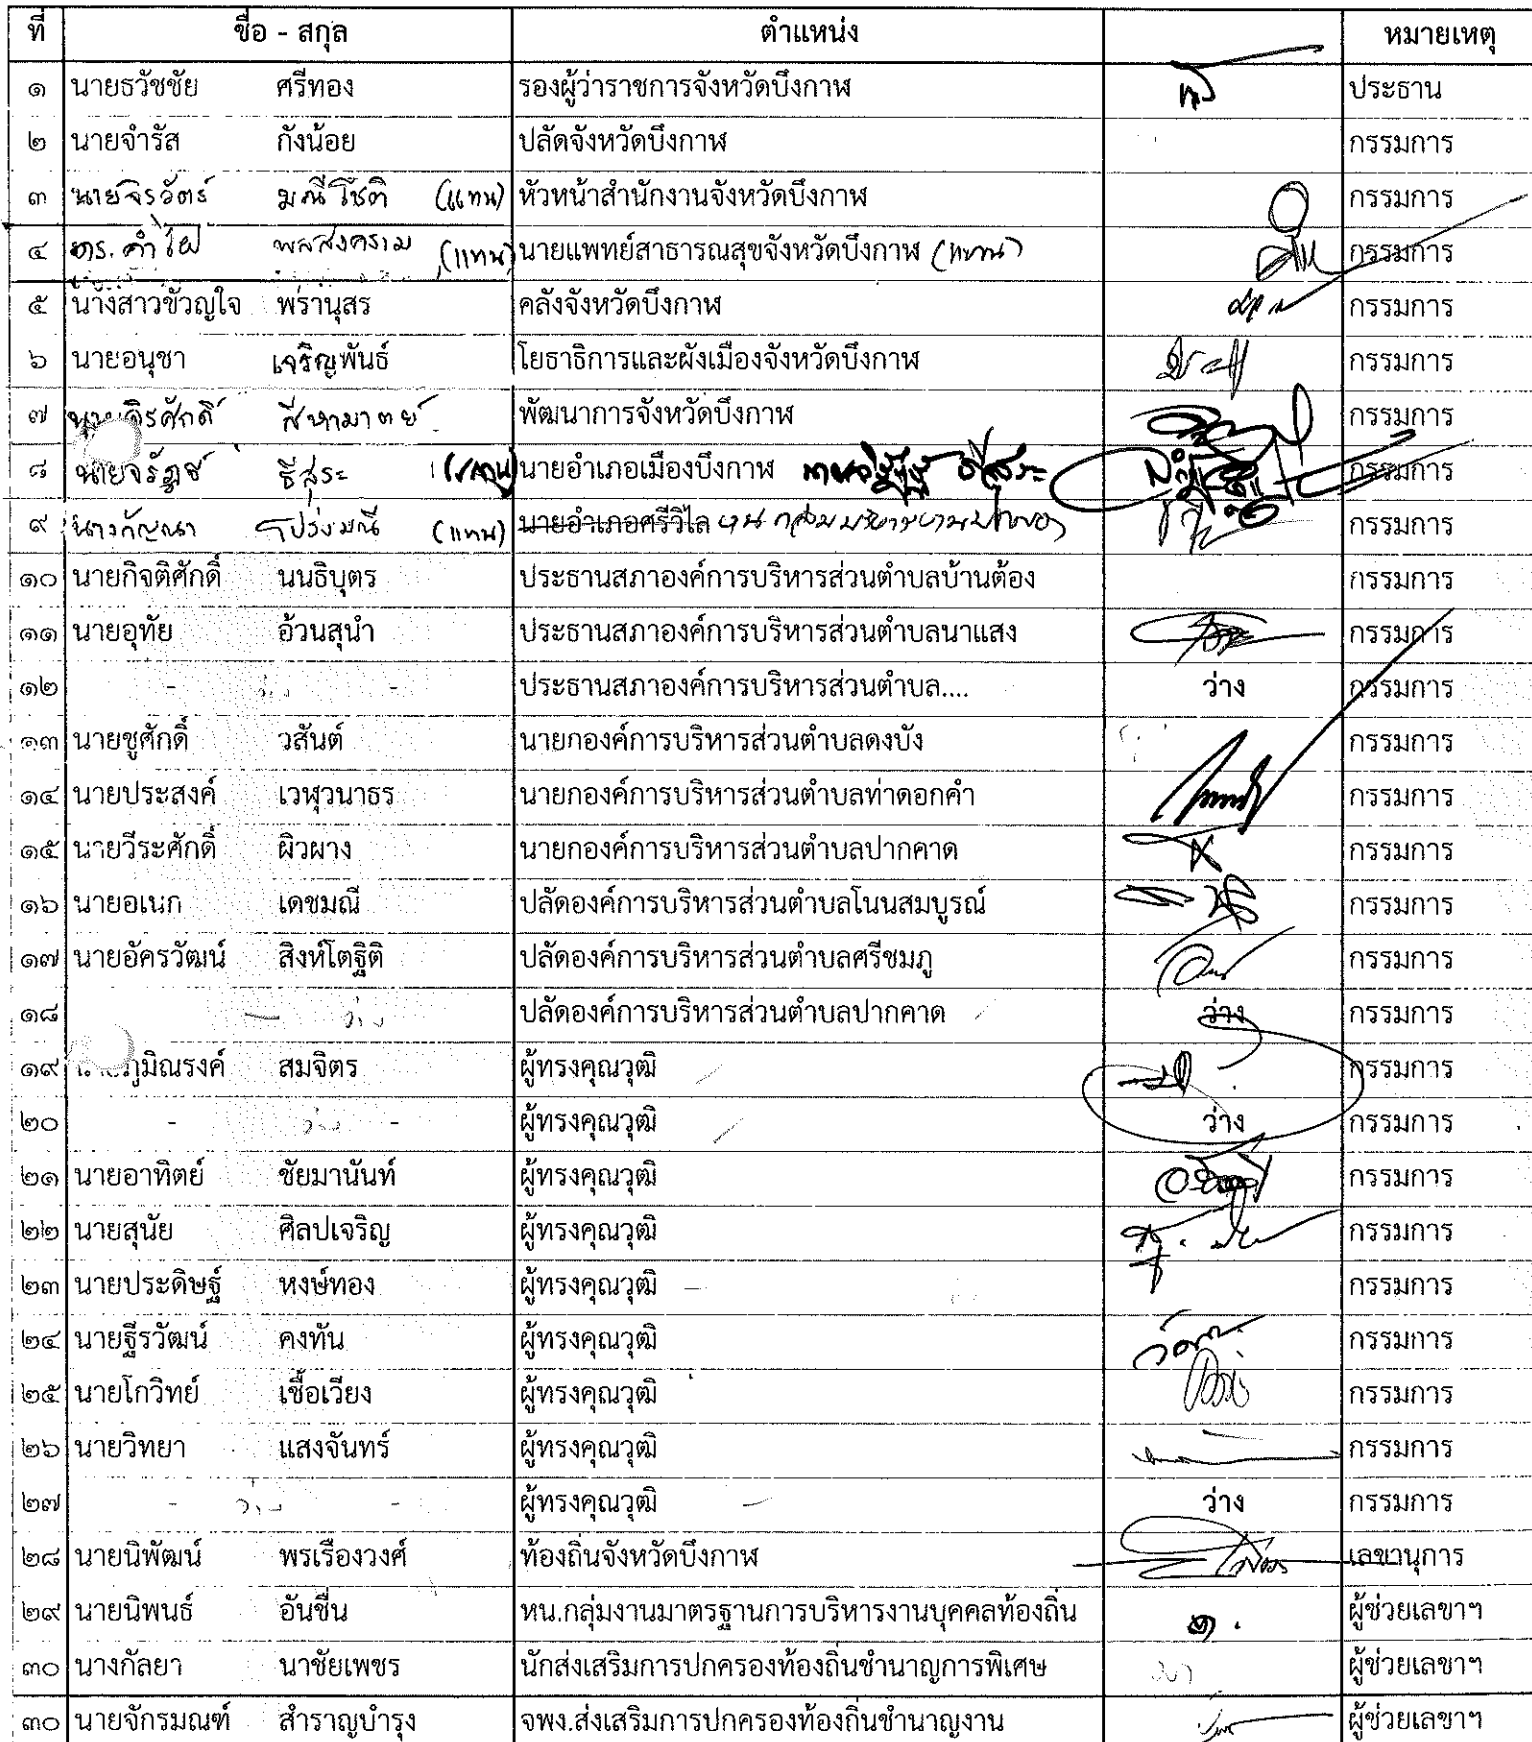 ที่ ชื่อ - สกุล ตำแหน่ง หมายเหตุ
๑ นายธวัชชัย ศรีทอง รองผู้ว่าราชการจังหวัดบึงกาฬ ประธาน
๒ นายจำรัส กังน้อย ปลัดจังหวัดบึงกาฬ กรรมการ
๓ นายจิรวัตร์ มณีโชติ (แทน) หัวหน้าสำนักงานจังหวัดบึงกาฬ กรรมการ
๔ ดร.คำไผ พลสงคราม (แทน) นายแพทย์สาธารณสุขจังหวัดบึงกาฬ (แทน) กรรมการ
๕ นางสาวขวัญใจ พรานุสร คลังจังหวัดบึงกาฬ กรรมการ
๖ นายอนุชา เจริญพันธ์ โยธาธิการและผังเมืองจังหวัดบึงกาฬ กรรมการ
๗ สีหามาตย์ พัฒนาการจังหวัดบึงกาฬ กรรมการ
๘ ธิสระ (แทน) นายอำเภอเมืองบึงกาฬ กรรมการ
๙ (แทน) นายอำเภอศรีวิไล กรรมการ
๑๐ นายกิจติศักดิ์ นนธิบุตร ประธานสภาองค์การบริหารส่วนตำบลบ้านต้อง กรรมการ
๑๑ นายอุทัย อ้วนสุนำ ประธานสภาองค์การบริหารส่วนตำบลนาแสง กรรมการ
๑๒ - - ประธานสภาองค์การบริหารส่วนตำบล.... ว่าง กรรมการ
๑๓ นายชูศักดิ์ วสันต์ นายกองค์การบริหารส่วนตำบลดงบัง กรรมการ
๑๔ นายประสงค์ เวฬุวนาธร นายกองค์การบริหารส่วนตำบลท่าดอกคำ กรรมการ
๑๕ นายวีระศักดิ์ ผิวผาง นายกองค์การบริหารส่วนตำบลปากคาด กรรมการ
๑๖ นายอเนก เดชมณี ปลัดองค์การบริหารส่วนตำบลโนนสมบูรณ์ กรรมการ
๑๗ นายอัครวัฒน์ สิงห์โตฐิติ ปลัดองค์การบริหารส่วนตำบลศรีชมภู กรรมการ
๑๘ ปลัดองค์การบริหารส่วนตำบลปากคาด ว่าง กรรมการ
๑๙ นายภูมิณรงค์ สมจิตร ผู้ทรงคุณวุฒิ กรรมการ
๒๐ - - ผู้ทรงคุณวุฒิ ว่าง กรรมการ
๒๑ นายอาทิตย์ ชัยมานันท์ ผู้ทรงคุณวุฒิ กรรมการ
๒๒ นายสุนัย ศิลปเจริญ ผู้ทรงคุณวุฒิ กรรมการ
๒๓ นายประดิษฐ์ หงษ์ทอง ผู้ทรงคุณวุฒิ กรรมการ
๒๔ นายฐีรวัฒน์ คงทัน ผู้ทรงคุณวุฒิ กรรมการ
๒๕ นายโกวิทย์ เชื้อเวียง ผู้ทรงคุณวุฒิ กรรมการ
๒๖ นายวิทยา แสงจันทร์ ผู้ทรงคุณวุฒิ กรรมการ
๒๗ - - ผู้ทรงคุณวุฒิ ว่าง กรรมการ
๒๘ นายนิพัฒน์ พรเรืองวงศ์ ท้องถิ่นจังหวัดบึงกาฬ เลขานุการ
๒๙ นายนิพนธ์ อันชื่น หน.กลุ่มงานมาตรฐานการบริหารงานบุคคลท้องถิ่น ผู้ช่วยเลขาฯ
๓๐ นางกัลยา นาชัยเพชร นักส่งเสริมการปกครองท้องถิ่นชำนาญการพิเศษ ผู้ช่วยเลขาฯ
๓๐ นายจักรมณฑ์ สำราญบำรุง จพง.ส่งเสริมการปกครองท้องถิ่นชำนาญงาน ผู้ช่วยเลขาฯ